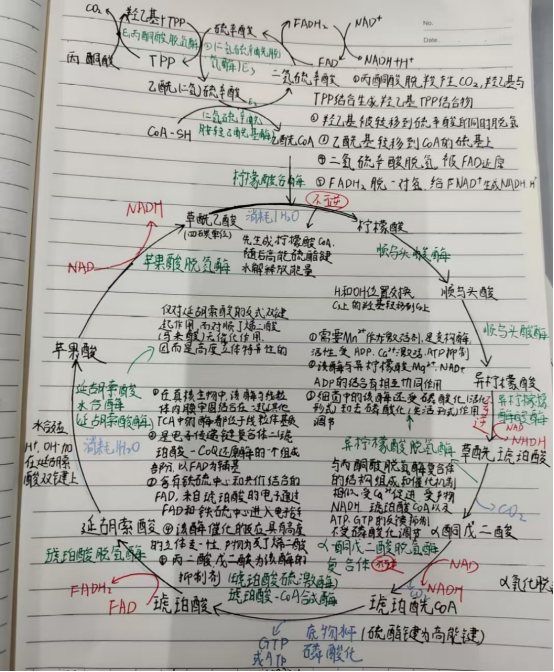 No.
Date.
CO₂
羟乙基TPP
硫辛酸
FADH₂
NAD⁺
E₁丙酮酸脱羧酶
丙酮酸
TPP
FAD
NADH+H⁺
乙酰二氢硫辛酸
二氢硫辛酸
①丙酮酸脱羧产生CO₂,羟乙基与
TPP结合生成羟乙基TPP结合物
②羟乙基被转移到硫辛酸并同时脱氢
CoA-SH
乙酰CoA
③乙酰基转移到CoA的硫基上
④二氢硫辛酸脱氢被FAD还原
柠檬酸合酶
⑤FADH₂脱一对氢给FNAD⁺生成NADH.H⁺
不可逆
NADH
草酰乙酸
消耗1H₂O
柠檬酸
(四碳单位)
先生成柠檬酸CoA,
随后高能硫酯键
水解释放能量
顺乌头酸酶
NAD
苹果酸脱氢酶
H和OH位置交换
顺乌头酸
仅对延胡索酸的反式双键
起作用,而对顺丁烯二酸
(马来酸)无催化作用,
因而是高度立体特异性的
顺乌头酸酶
苹果酸
①需要Mn²⁺作为激活剂,是变构酶,
活性受ADP.Ca²⁺激活,ATP抑制
②该酶与异柠檬酸,Mg²⁺.NAD⁺
ADP的结合有相互协同作用
③细菌中的该酶还受磷酸化(活化
形式)和去磷酸化(失活形式)作用
调节
异柠檬酸
延胡索酸
水合酶
(延胡索酸酶)
①在真核生物中,该酶与线粒
体内膜牢固结合在一起,其他
TCA中的酶都位于线粒体基质
②是电子传递链复合体二琥
珀酸-CoQ还原酶的一个组成
部分,以FAD为辅基
③含有铁硫中心和共价结合的
FAD,来自琥珀酸的电子通过
FAD和铁硫中心进入电子传
④该酶催化的反应具有高度
的立体专一性,产物为反丁烯二酸
⑤丙二酸戊二酸为该酶的
抑制剂
水合位
H⁺,OH⁻加
在延胡索
酸双键上
消耗1H₂O
异柠檬酸脱氢酶
NAD
NADH
草酰琥珀酸
与丙酮酸脱氢酶复合体
的结构组成和催化机制
相似,受Ca²⁺促进 受产物
NADH 琥珀酰COA以及
ATP.GTP的反馈抑制
不受磷酸化调节
CO₂
α酮戊二酸
延胡索酸
琥珀酸脱氢酶
α-酮戊二酸脱氢酶
复合体
NAD
NADH
FADH₂
FAD
琥珀酸
(琥珀酸硫激酶)
琥珀酸-CoA合成酶
琥珀酰CoA
GTP
或ATP
底物水平
磷酸化
(硫酯键为高能键)